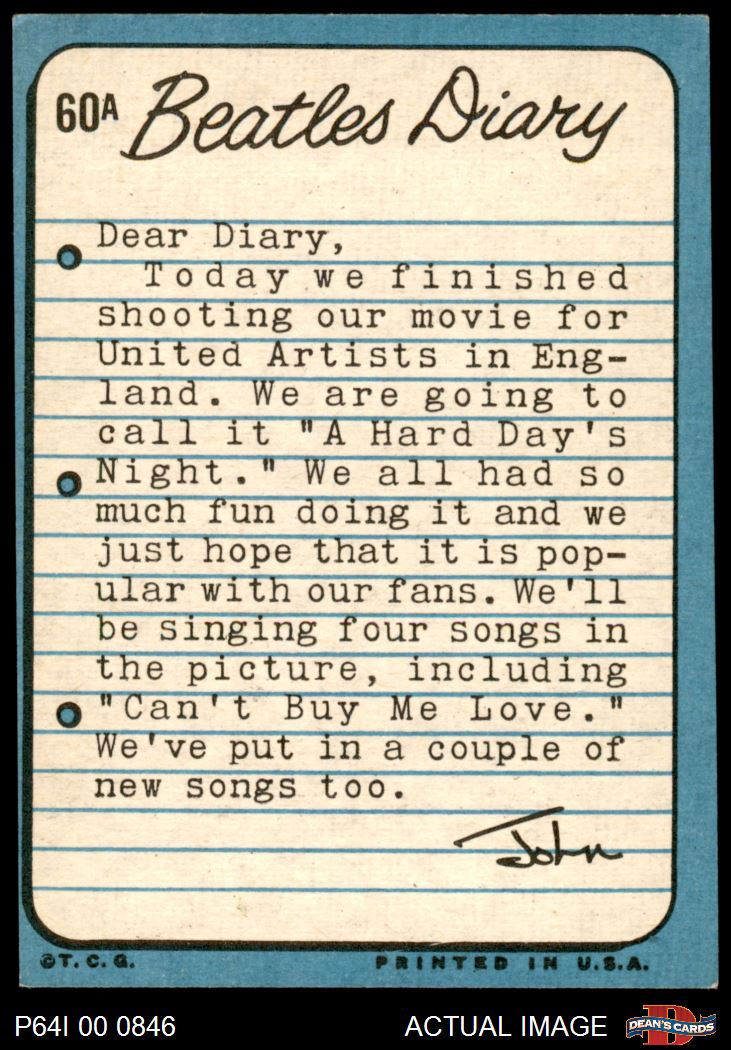 60A Beatles Diary
Dear Diary,
Today we finished
shooting our movie for
United Artists in Eng-
land. We are going to
call it "A Hard Day's
Night." We all had so
much fun doing it and we
just hope that it is pop-
ular with our fans. We'll
be singing four songs in
the picture, including
"Can't Buy Me Love."
We've put in a couple of
new songs too.
John
©T.C.G. PRINTED IN U.S.A.
P64I 00 0846 ACTUAL IMAGE DEAN'S CARDS